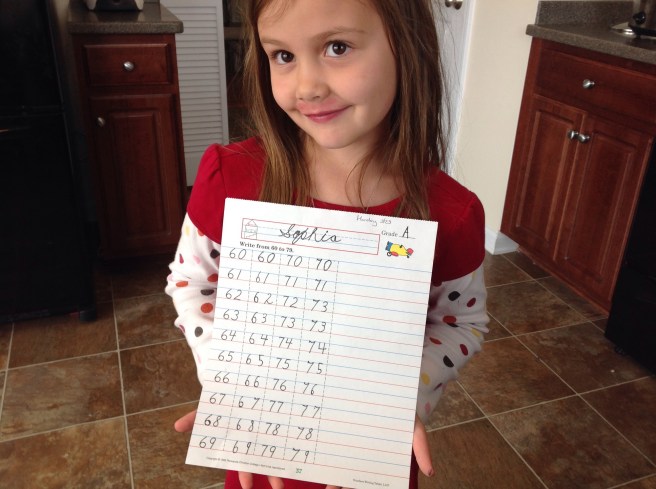 Monday
Sophia Grade A
Write from 60 to 79.
60 60 70 70
61 61 71 71
62 62 72 73
63 63 73 73
64 64 74 74
65 65 75 75
66 66 76 76
67 67 77 77
68 68 78 78
69 69 79 79